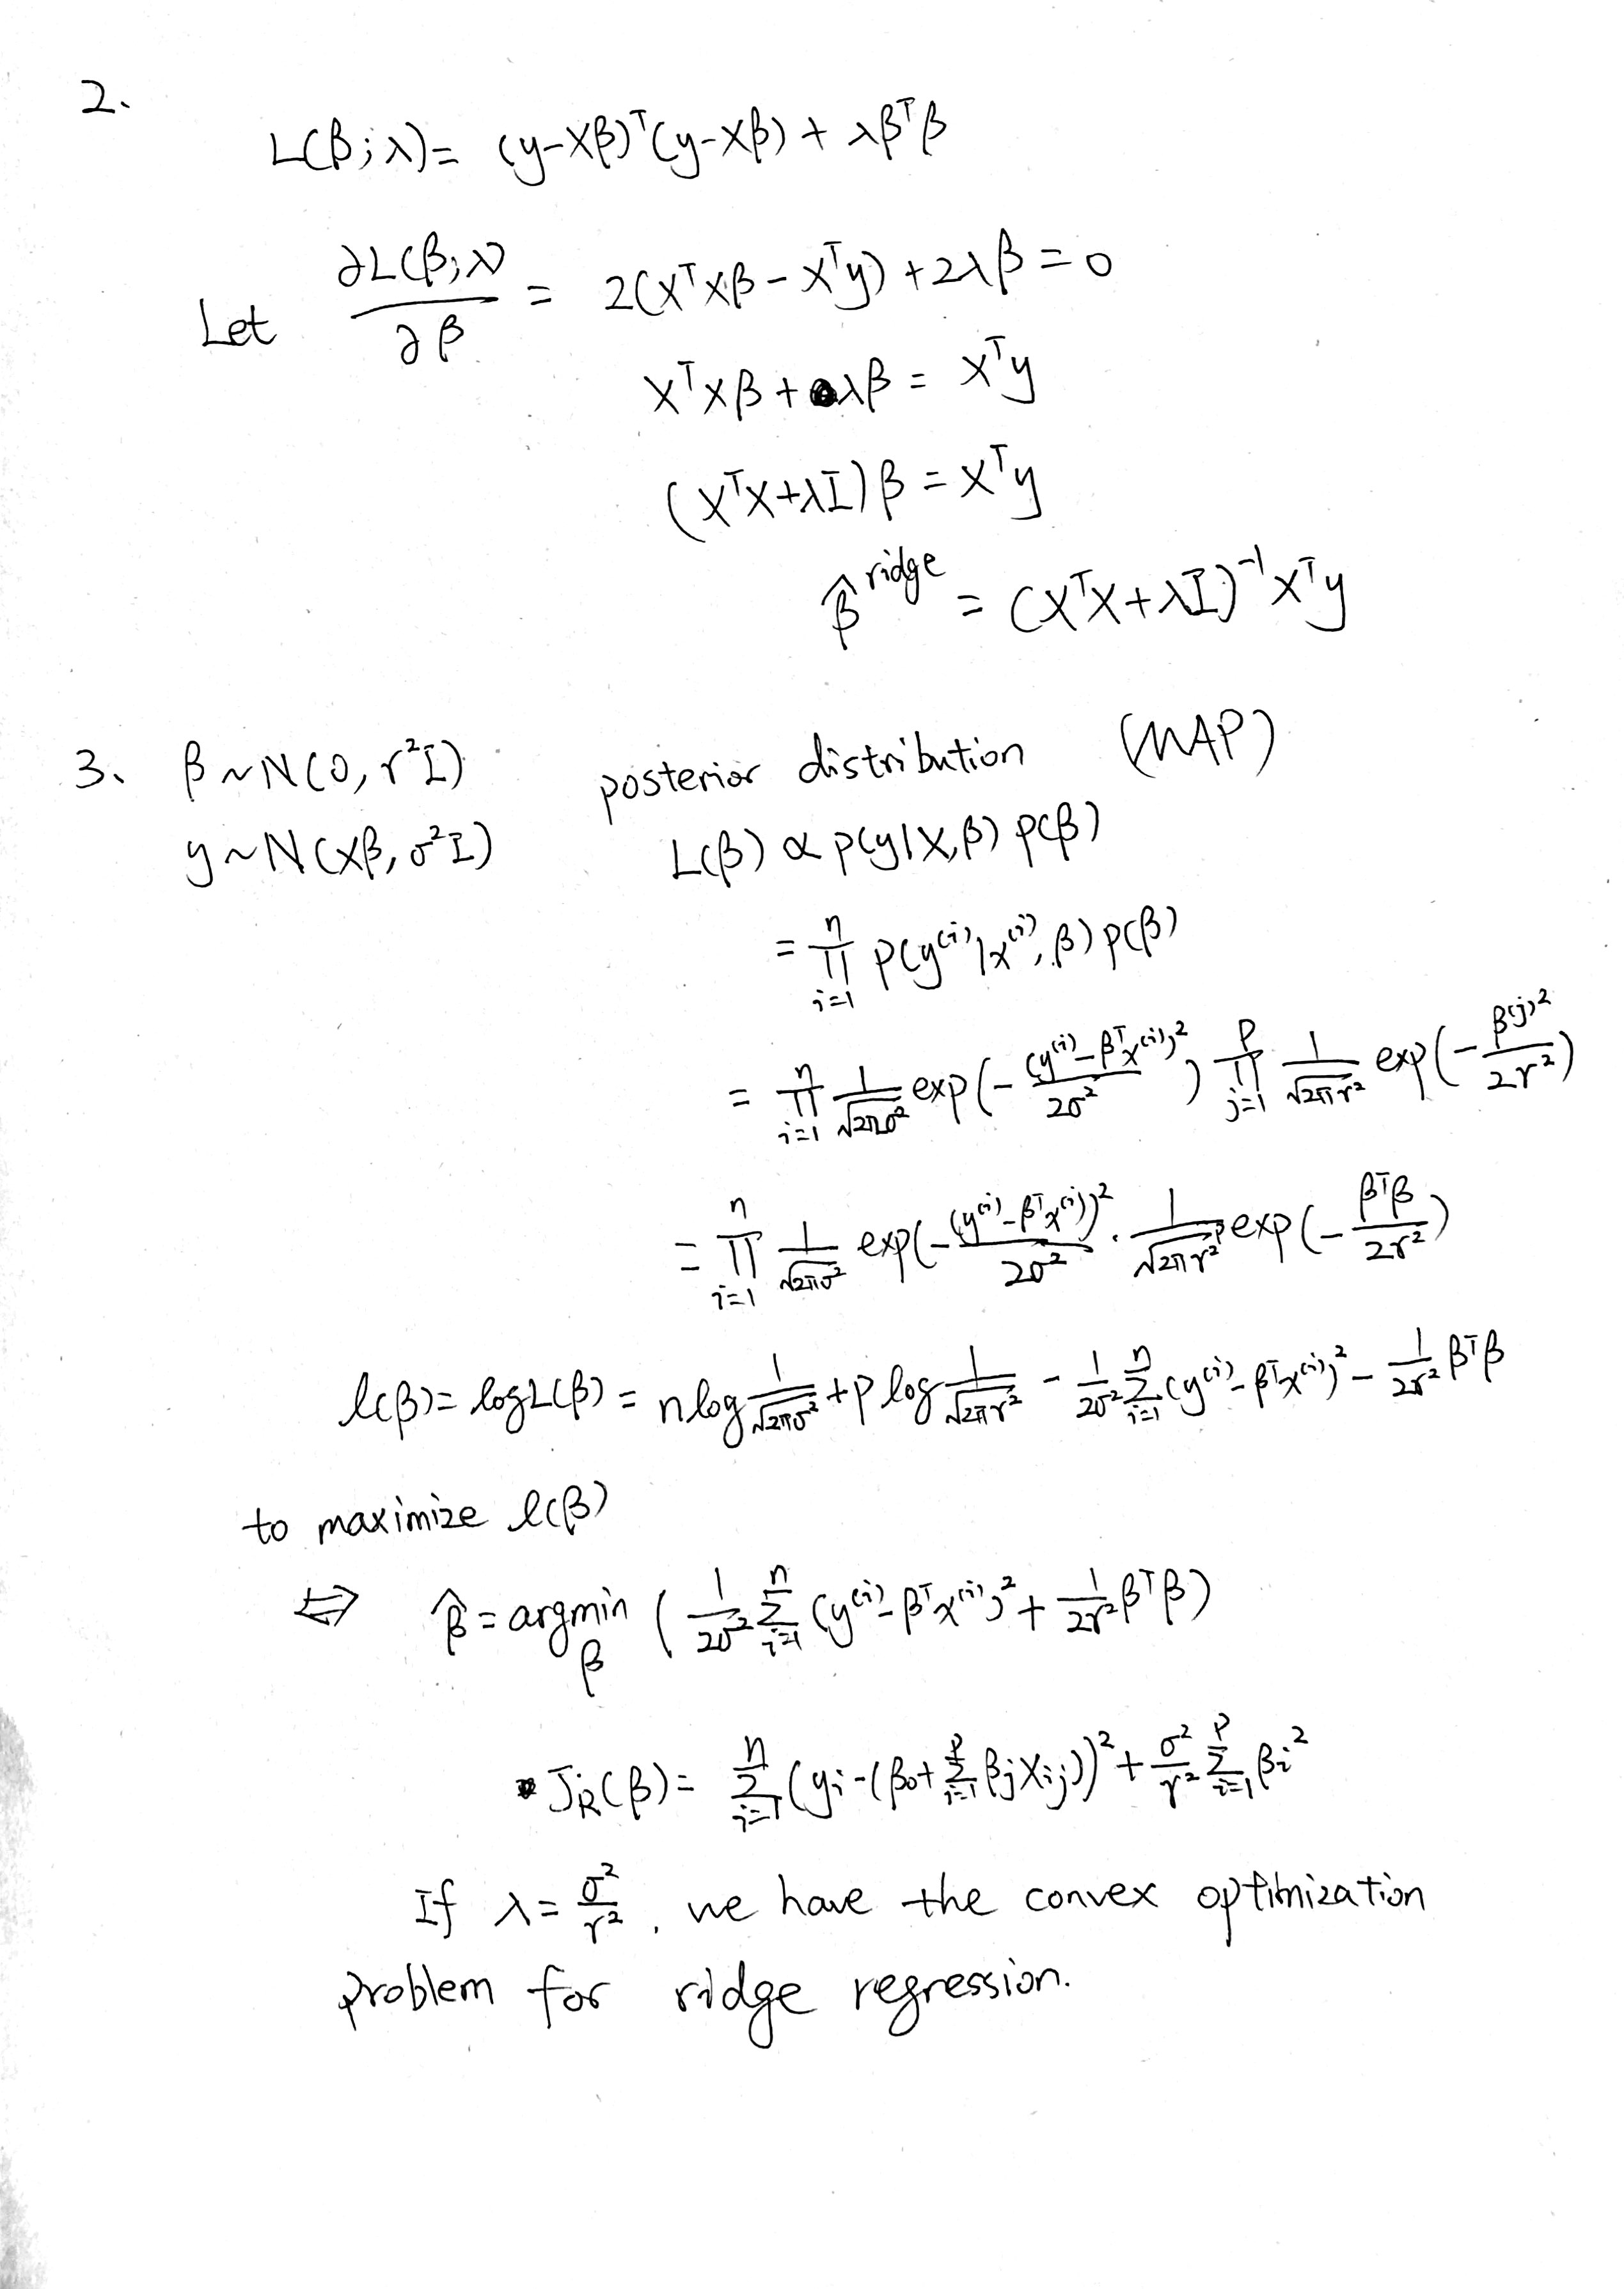 2.
L(β;λ)= (y-Xβ)ᵀ(y-Xβ) + λβᵀβ
Let ∂L(β;λ)/∂β = 2(XᵀXβ - Xᵀy) + 2λβ = 0
XᵀXβ + λβ = Xᵀy
(XᵀX+λI)β = Xᵀy
β̂^ridge = (XᵀX+λI)⁻¹Xᵀy
3. β~N(0, τ²I) posterior distribution (MAP)
y~N(Xβ, σ²I) L(β) ∝ p(y|X,β) p(β)
= ∏_{i=1}^{n} p(y⁽ⁱ⁾|x⁽ⁱ⁾, β) p(β)
= ∏_{i=1}^{n} 1/√(2πσ²) exp(- (y⁽ⁱ⁾-βᵀx⁽ⁱ⁾)²/2σ²) ∏_{j=1}^{p} 1/√(2πτ²) exp(- β⁽ʲ⁾²/2τ²)
= ∏_{i=1}^{n} 1/√(2πσ²) exp(- (y⁽ⁱ⁾-βᵀx⁽ⁱ⁾)²/2σ²) · 1/√(2πτ²)^p exp(- βᵀβ/2τ²)
l(β) = log L(β) = n log 1/√(2πσ²) + p log 1/√(2πτ²) - 1/2σ² ∑_{i=1}^{n} (y⁽ⁱ⁾-βᵀx⁽ⁱ⁾)² - 1/2τ² βᵀβ
to maximize l(β)
⇔ β̂ = argmin_β ( 1/2σ² ∑_{i=1}^{n} (y⁽ⁱ⁾-βᵀx⁽ⁱ⁾)² + 1/2τ² βᵀβ)
J_R(β) = ∑_{i=1}^{n} (yi-(β₀+ ∑_{j=1}^{p} βjXij))² + σ²/τ² ∑_{i=1}^{p} βi²
If λ = σ²/τ², we have the convex optimization
problem for ridge regression.